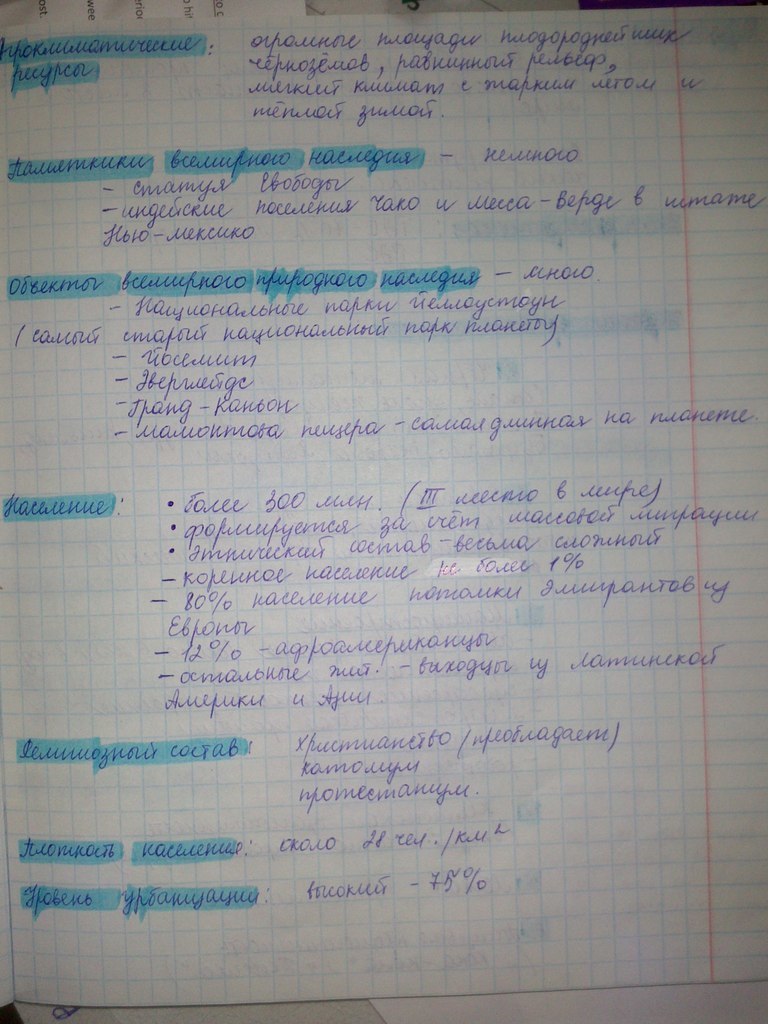 Агроклиматические: огромные площади плодороднейших
ресурсы чернозёмов, равнинный рельеф,
мягкий климат с жарким летом и
тёплой зимой.
Памятники всемирного наследия – немного
– статуя Свободы
– индейские поселения Чако и Месса-Верде в штате
Нью-Мексико
Объекты всемирного природного наследия – много.
– Национальные парки Йеллоустоун
(самый старый национальный парк планеты)
– Йосемит
– Эверглейдс
– Гранд-Каньон
– Мамонтова пещера – самая длинная на планете.
Население: • более 300 млн. (III место в мире)
• формируется за счёт массовой миграции
• Этнический состав – весьма сложный
– коренное население не более 1%
– 80% население потомки эмигрантов из
Европы
– 12% – афроамериканцы
– остальные жит. – выходцы из Латинской
Америки и Азии.
Религиозный состав: Христианство (преобладает)
католицизм
протестантизм.
Плотность населения: около 28 чел./км²
Уровень урбанизации: высокий – 75%